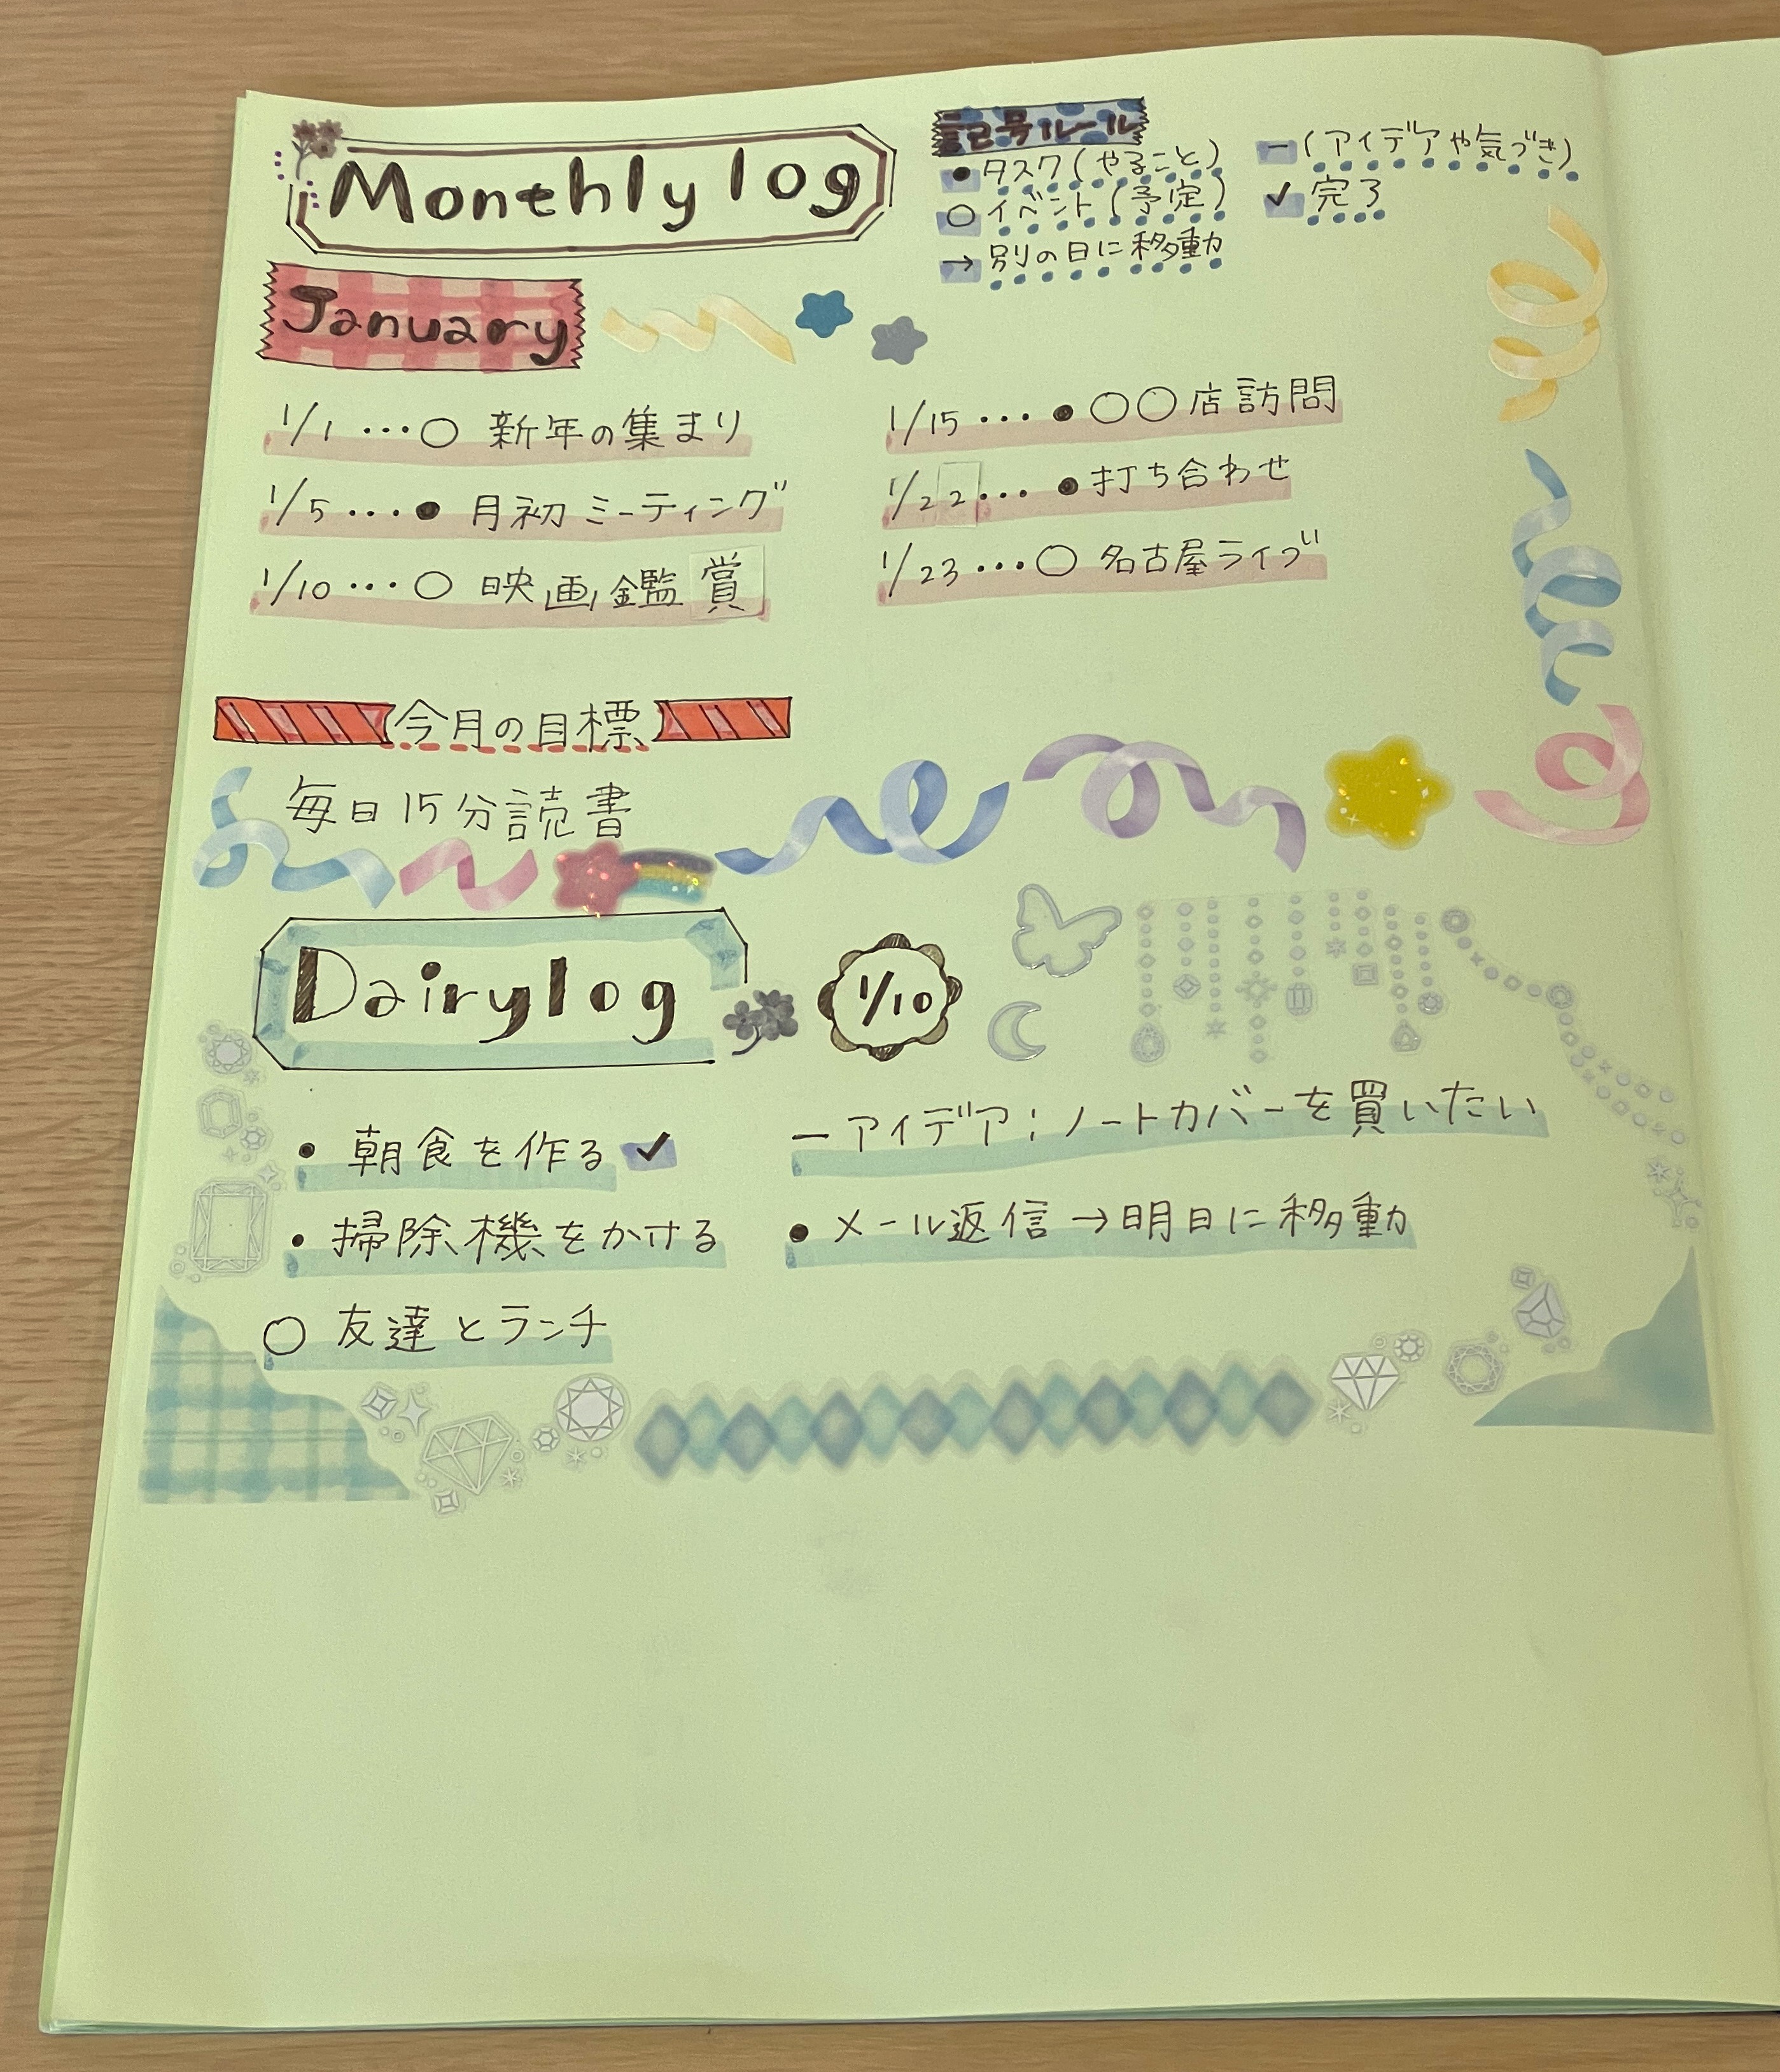 Monthly log
記号ルール
● タスク(やること)
○ イベント(予定)
→ 別の日に移動
ー(アイデアや気づき)
✓ 完了
January
1/1 ・・・○ 新年の集まり
1/5 ・・・● 月初ミーティング
1/10 ・・・○ 映画鑑賞
1/15 ・・・● ○○店訪問
1/22 ・・・● 打ち合わせ
1/23 ・・・○ 名古屋ライブ
今月の目標
毎日15分読書
Dairylog
1/10
● 朝食を作る ✓
● 掃除機をかける
○ 友達とランチ
ー アイデア:ノートカバーを買いたい
● メール返信 → 明日に移動